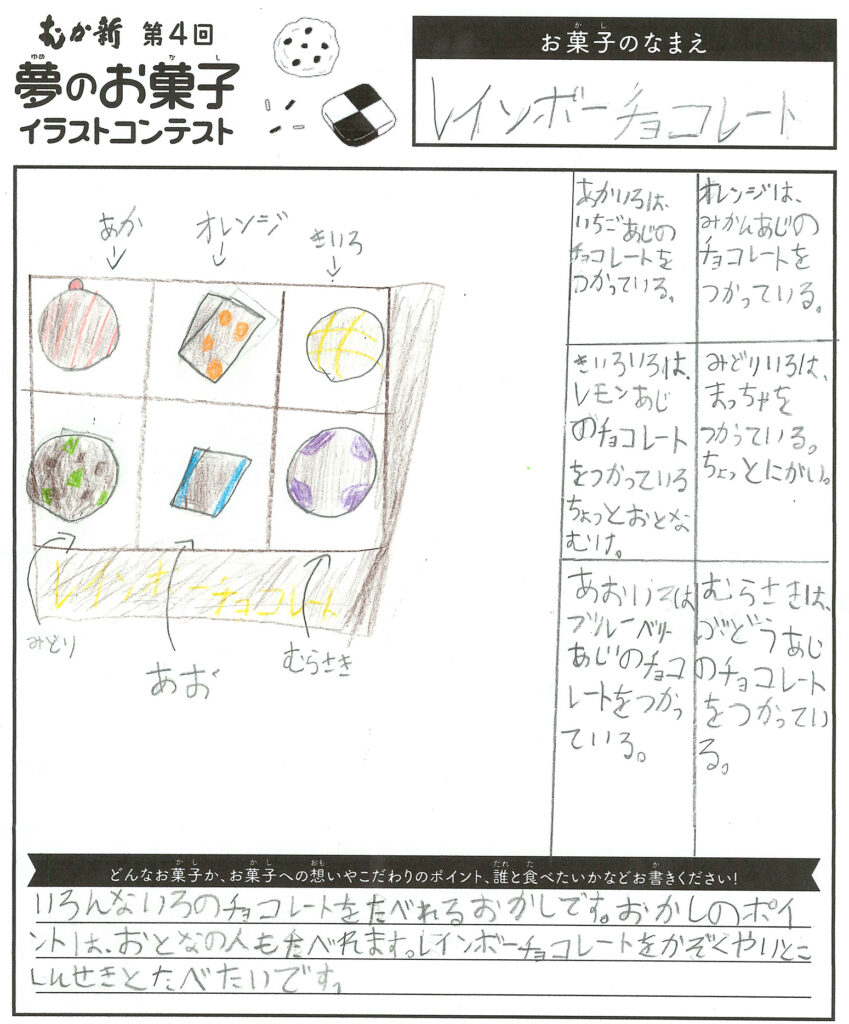 むか新 第4回
夢のお菓子
ゆめ かし
イラストコンテスト
お菓子のなまえ
かし
レインボーチョコレート
あか
オレンジ
きいろ
レインボーチョコレート
みどり
あお
むらさき
あかいろは、
いちごあじの
チョコレートを
つかっている。
オレンジは、
みかんあじの
チョコレートを
つかっている。
きいろいろは、
レモンあじ
のチョコレート
をつかっている
ちょっとおとな
むけ。
みどりいろは、
まっちゃを
つかっている。
ちょっとにがい。
あおいろは
ブルーベリー
あじのチョコ
レートをつかっ
ている。
むらさきは、
ぶどうあじ
のチョコレート
をつかってい
る。
どんなお菓子か、お菓子への想いやこだわりのポイント、誰と食べたいかなどお書きください!
かし かし おも だれ た か
いろんないろのチョコレートをたべれるおかしです。おかしのポイ
ントは、おとなの人もたべれます。レインボーチョコレートをかぞくやいとこ
しんせきとたべたいです。